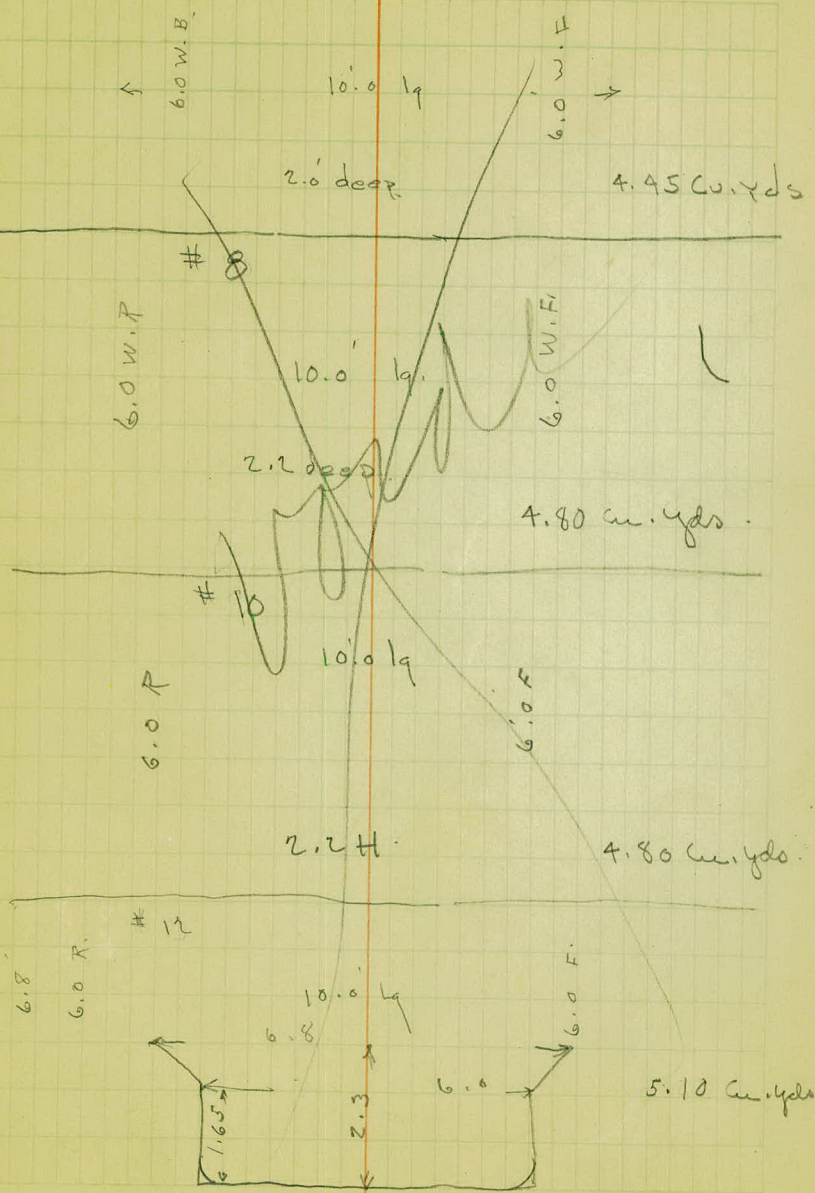 6.0 W.B.
10.0' lg
6.0 W.F
2.0' deep.
4.45 Cu. yds
# 8
6.0 W.R
10.0' lg.
6.0 W.F.
2.2 deep
4.80 Cu. yds.
# 10
10.0' lg
6.0 R
6.0 F
2.2 H.
4.80 Cu. yds.
# 12
6.8'
6.0 R.
10.0' lg
6.0 F.
6.8
1.65
2.3
6.0
5.10 Cu. yds